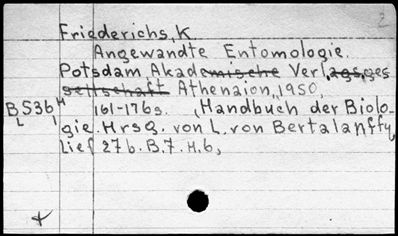 2
Friederichs, K.
Angewandte Entomologie.
Potsdam Akademische Verlagsges
sellschaft Athenaion, 1950,
B536 H 161-176s. (Handbuch der Biolo-
L 1
gie. Hrsg. von L. von Bertalanffy
Lief 27 b. B. 7. H. 6,